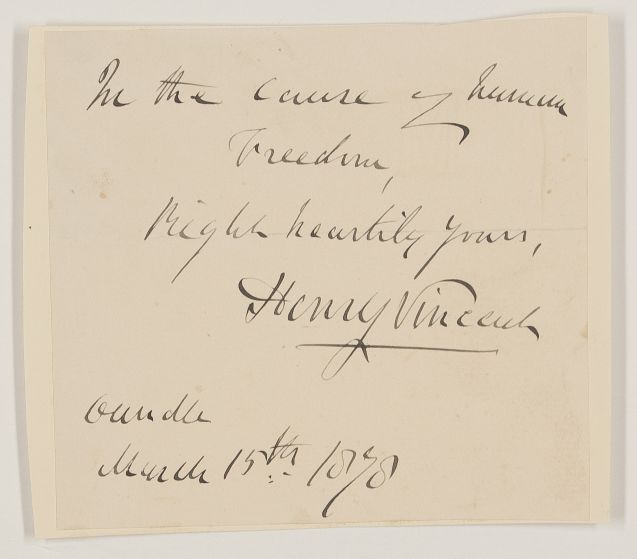 In the cause of human
Freedom,
Right heartily yours,
Henry Vincent
Oundle
March 15th. 1878